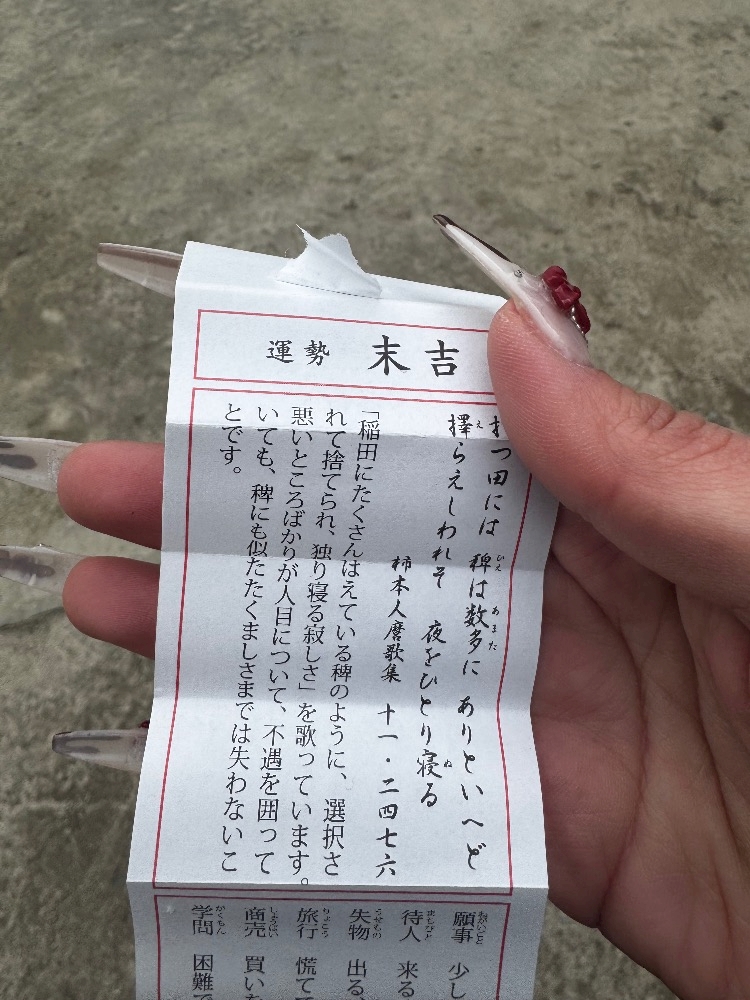 運勢 末吉
打つ田には 稗は数多に ありといへど
擇らえしわれそ 夜をひとり寝る
柿本人麿歌集 十一・二四七六
「稲田にたくさんはえている稗のように、選択さ
れて捨てられ、独り寝る寂しさ」を歌っています。
悪いところばかりが人目について、不遇を囲って
いても、稗にも似たたくましさまでは失わないこ
とです。
願事 少し
待人 来る
失物 出る、
旅行 慌てて
商売 買い
学問 困難で